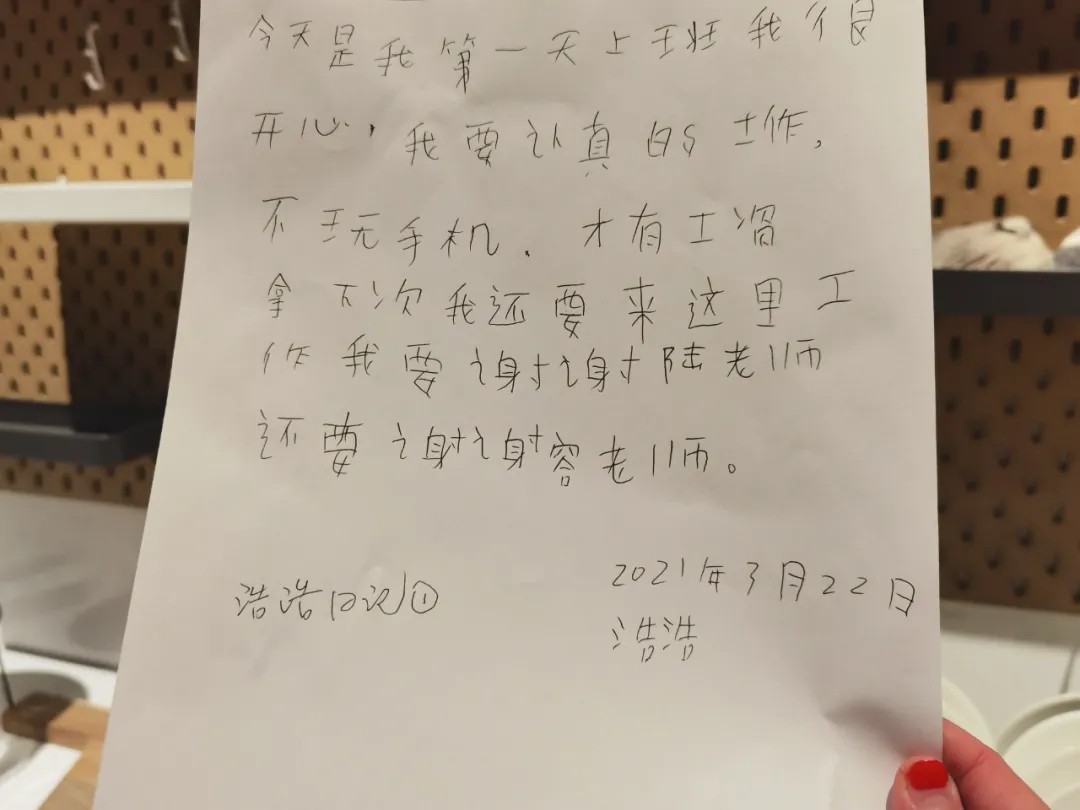 今天是我第一天上班我很
开心，我要认真的工作，
不玩手机．才有工资
拿下次我还要来这里工
作我要谢谢陆老师
还要谢谢容老师。
2021年3月22日
浩浩日记①
浩浩